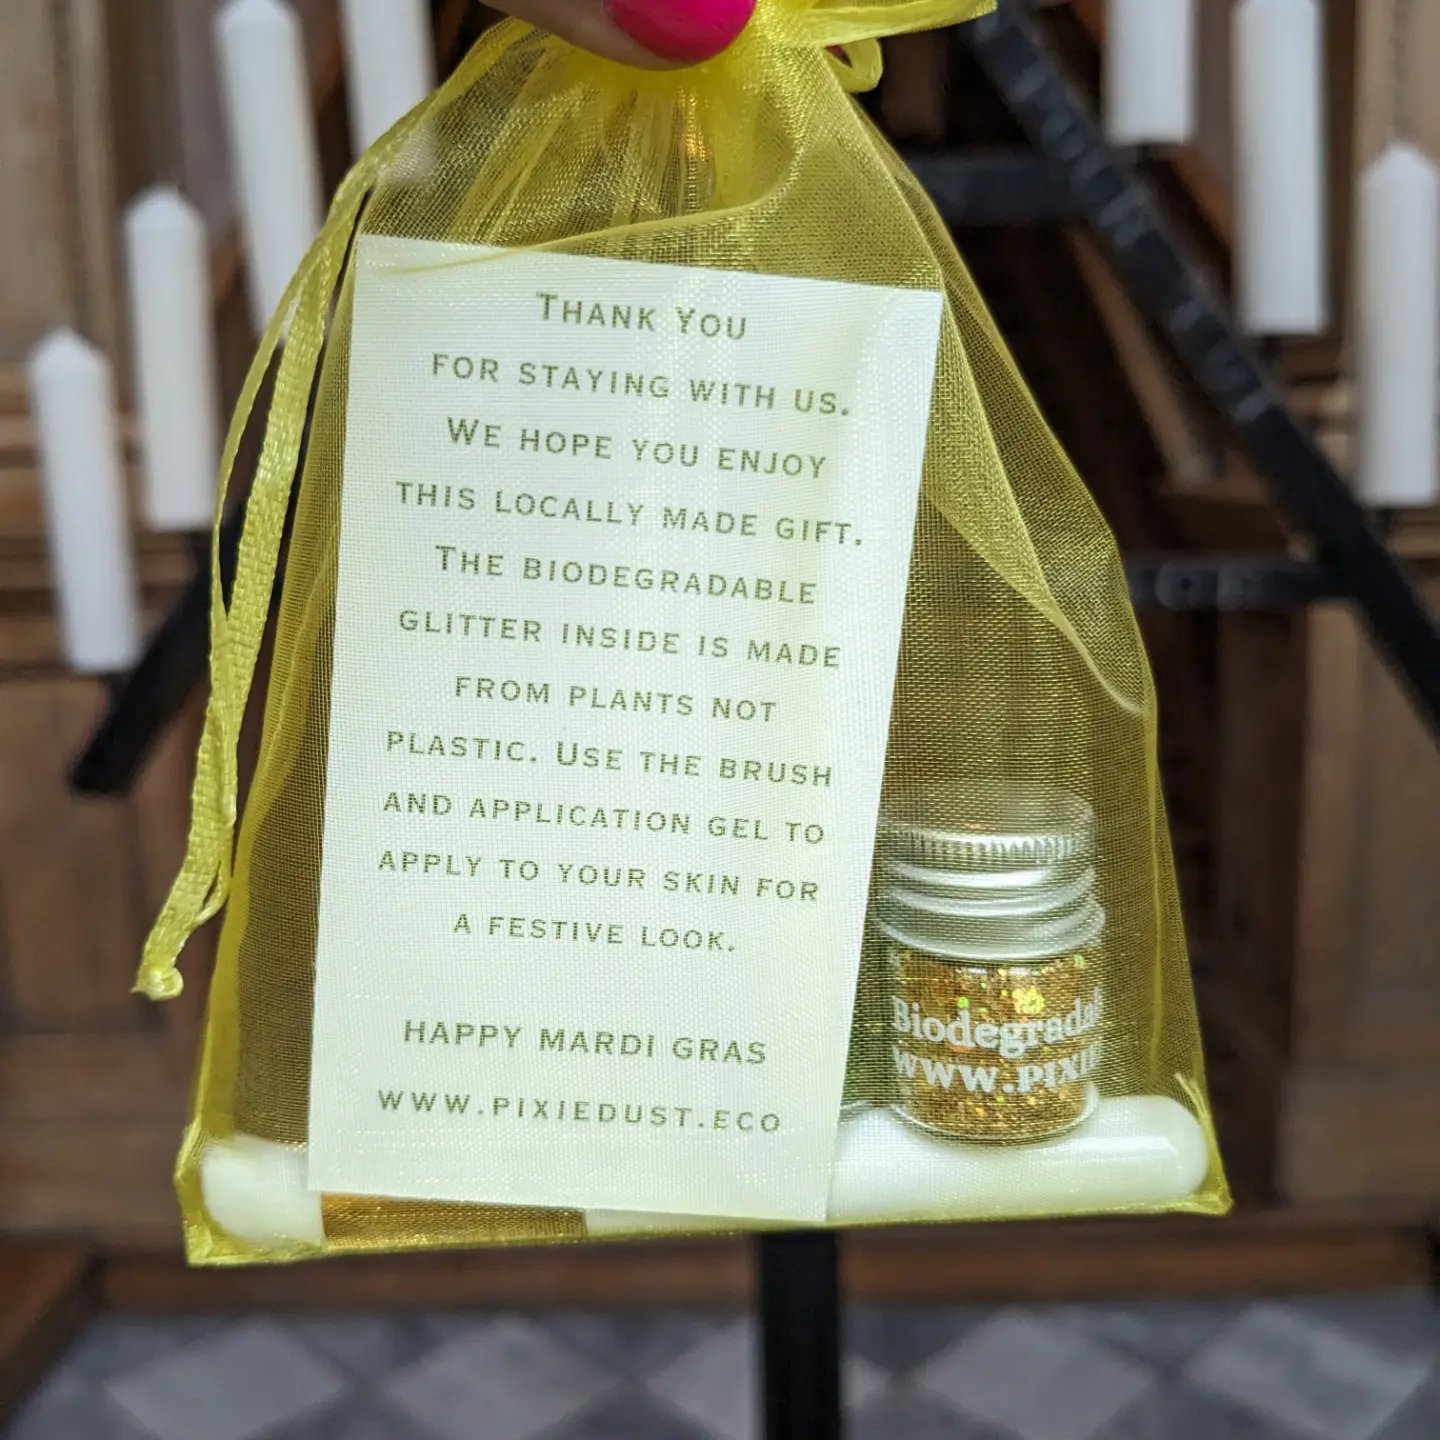 THANK YOU
FOR STAYING WITH US.
WE HOPE YOU ENJOY
THIS LOCALLY MADE GIFT.
THE BIODEGRADABLE
GLITTER INSIDE IS MADE
FROM PLANTS NOT
PLASTIC. USE THE BRUSH
AND APPLICATION GEL TO
APPLY TO YOUR SKIN FOR
A FESTIVE LOOK.
HAPPY MARDI GRAS
WWW.PIXIEDUST.ECO
Biodegradab
www.pixie